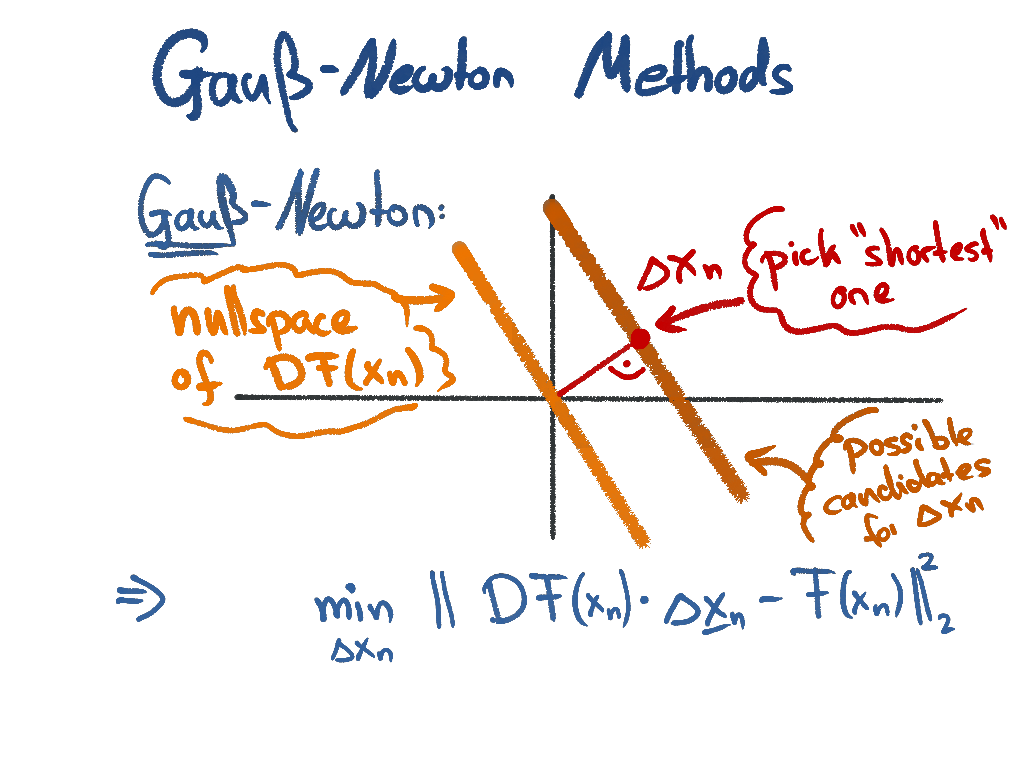 Gauß-Newton Methods
Gauß-Newton:
nullspace
of DF(xₙ)
Δxₙ
pick "shortest"
one
possible
candidates
for Δxₙ
⇒ min ‖ DF(xₙ) · Δxₙ − F(xₙ) ‖₂²
Δxₙ